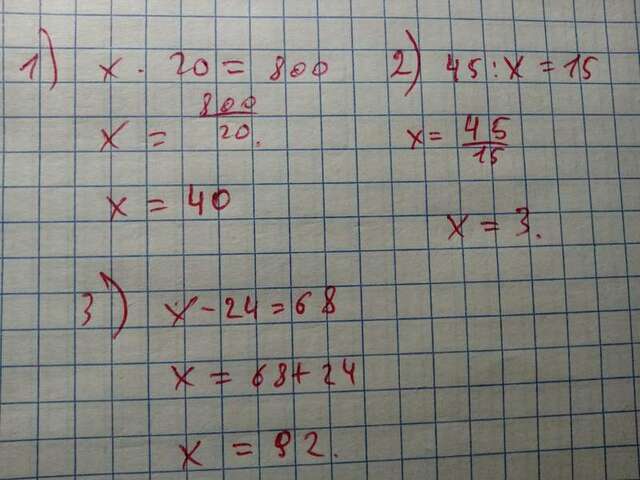 1) x · 20 = 800
x = 800/20.
x = 40
2) 45 : x = 15
x = 45/15
x = 3.
3) x - 24 = 68
x = 68 + 24
x = 92.